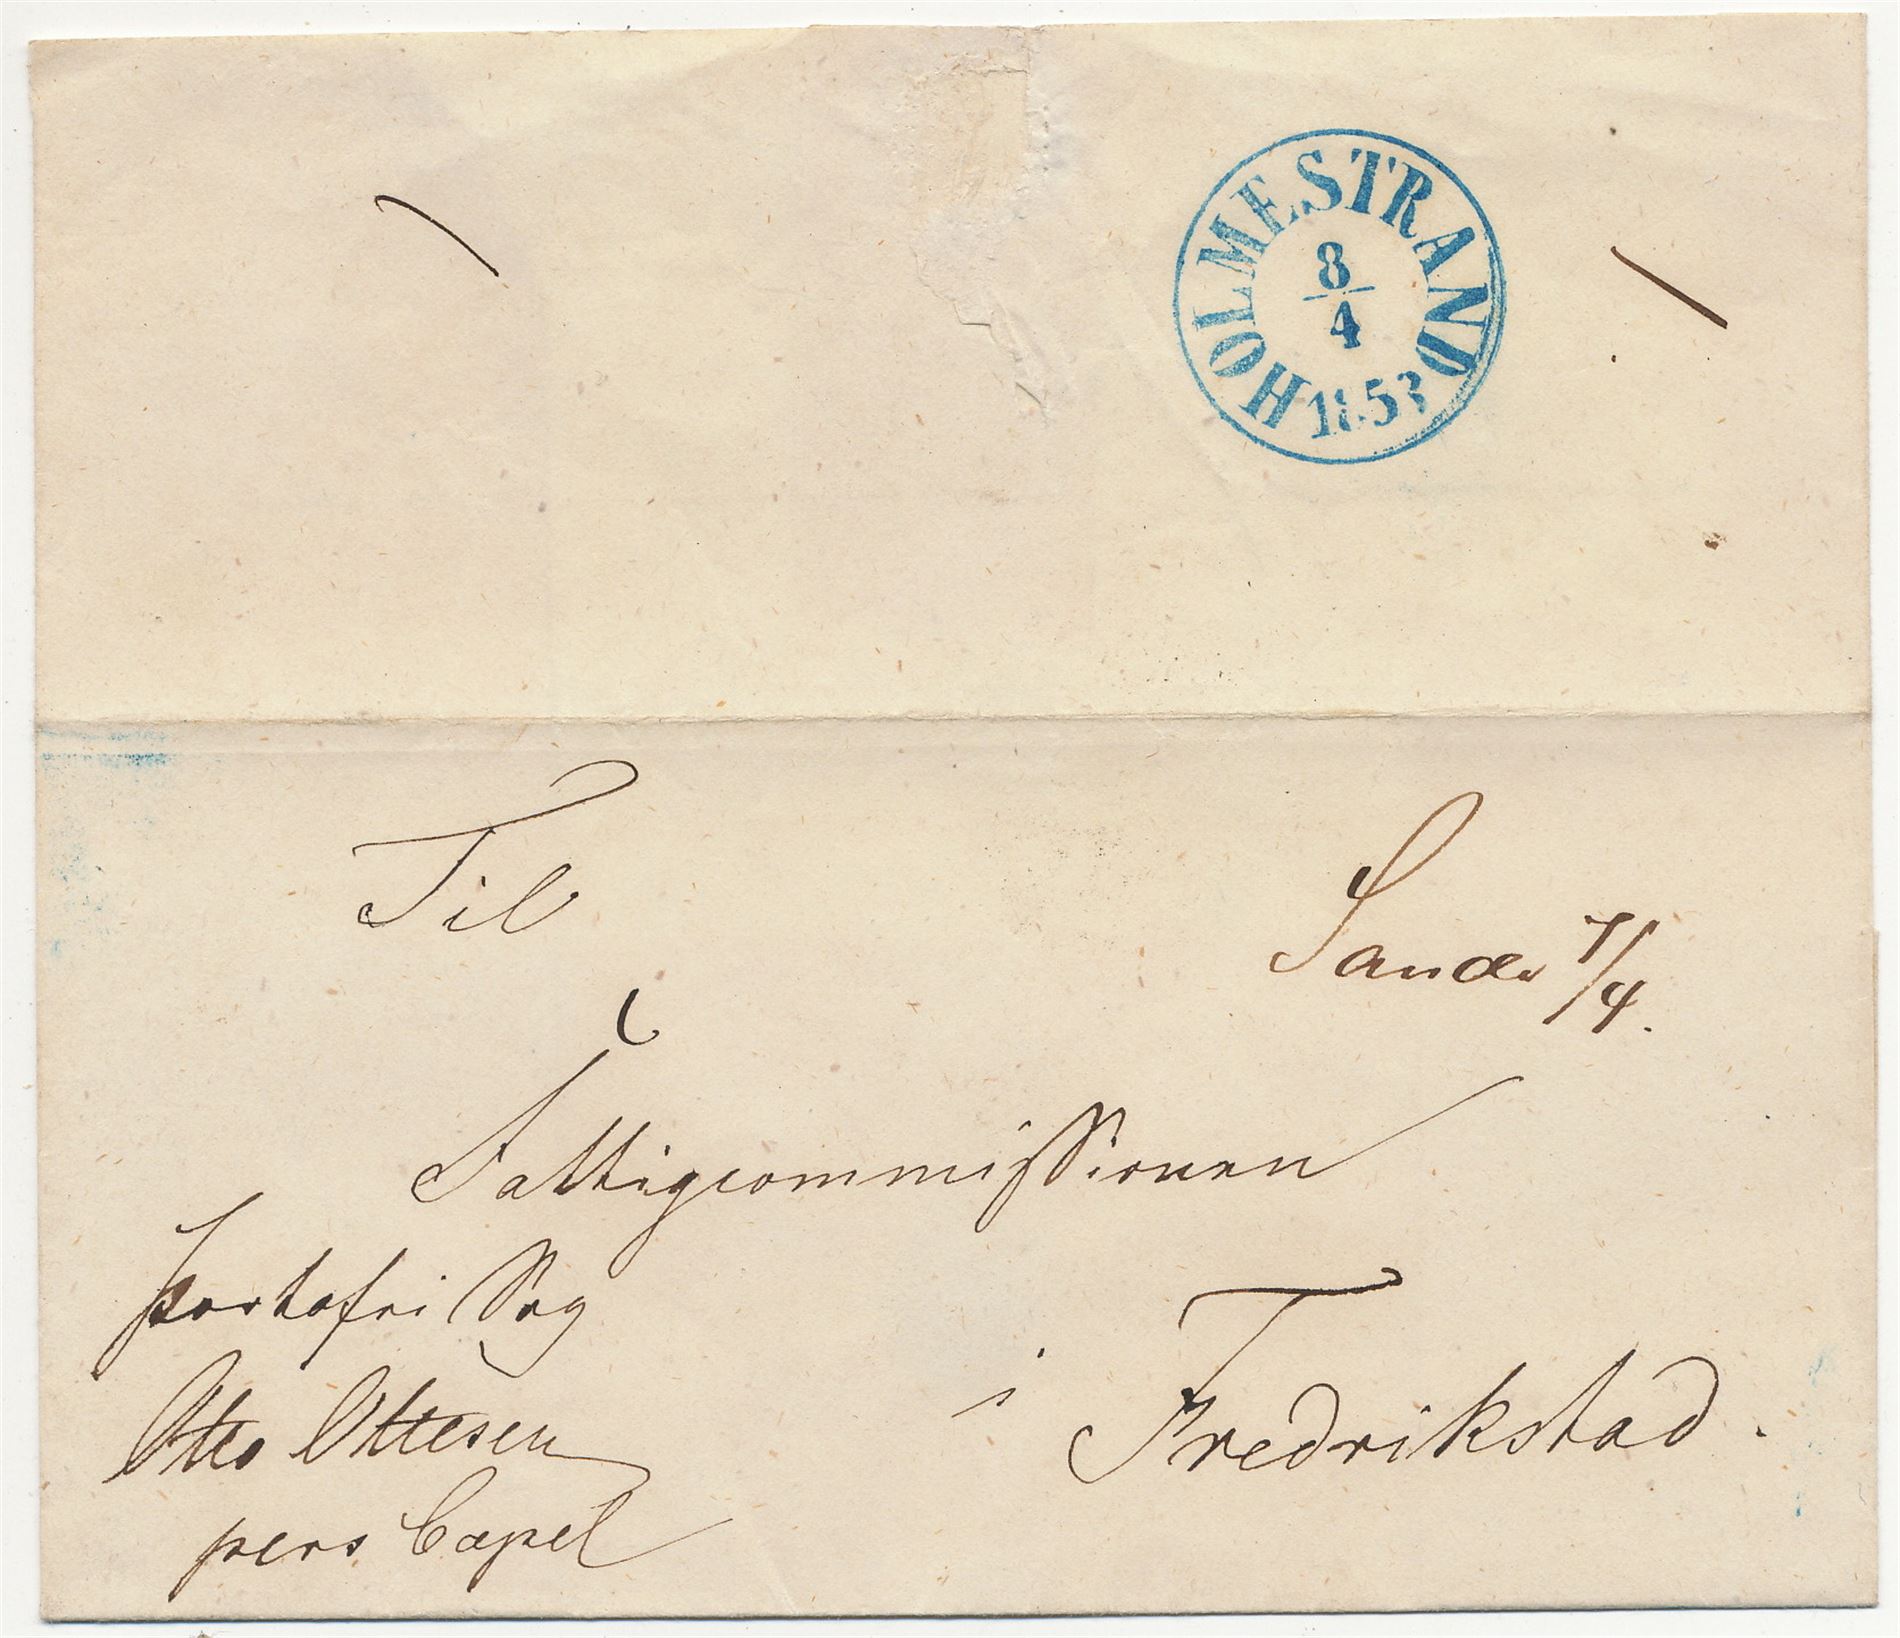 HOLMESTRAND
8/4
1853
Til
Sande 7/4.
Fattigcommissionen
Portofri Sag
i Fredrikstad.
Otto Ottesen
pers Capel